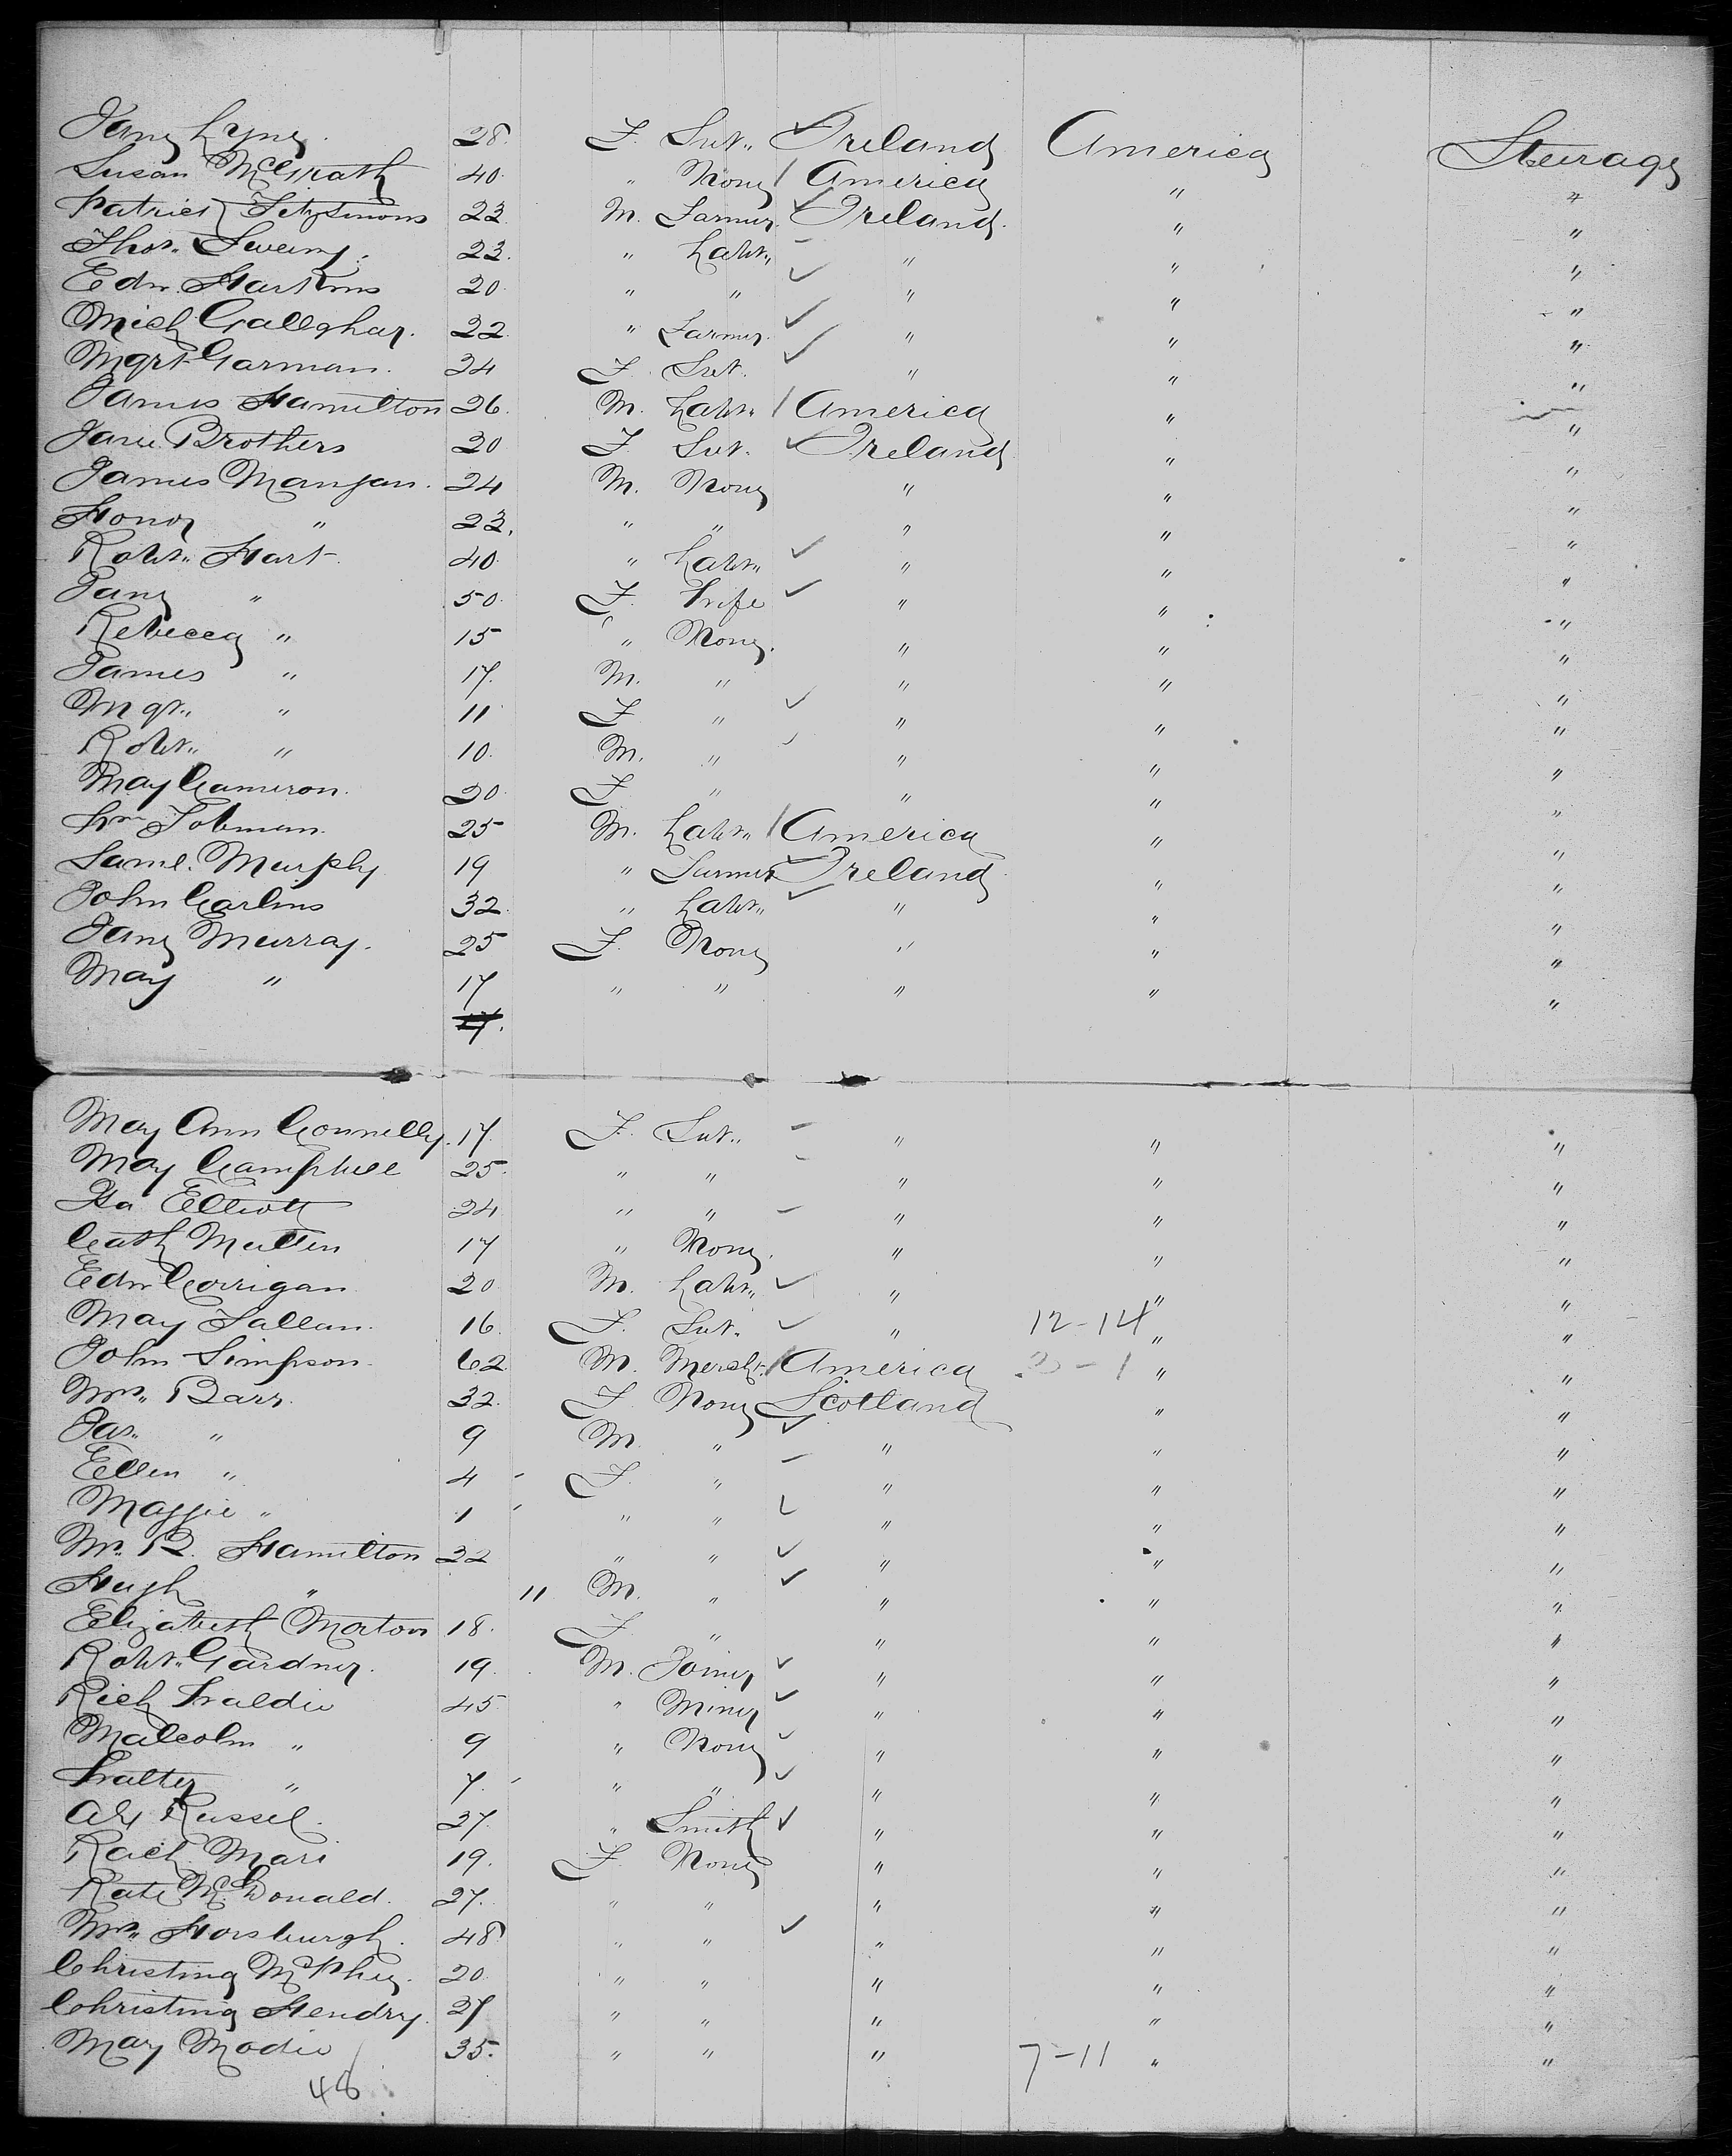 Jane Lyne 28 F. Svt. Ireland America Steerage
Susan McGrath 40 " None America " "
Patrick Fitzsimons 22 M. Farmer Ireland " "
Thos. Sweeny 22 " Labr. " " "
Edw. Harkins 20 " " " " "
Mich Gallaghar 22 " Farmer " " "
Mgrt Garman 24 F. Svt. " " "
James Hamilton 26 M. Labr. America " "
Jane Brothers 20 F. Svt. Ireland " "
James Mangan 24 M. None " " "
Honor " 22 " " " " "
Robt. Hart 40 " Labr. " " "
Jane " 50 F. Wife " " "
Rebecca " 15 " None " " "
James " 17 M. " " " "
Mgt. " 11 F " " " "
Robt. " 10 M. " " " "
May Cameron 20 F " " " "
Wm Tobman 25 M. Labr. America " "
Saml. Murphy 19 " Farmer Ireland " "
John Carlins 32 " Labr. " " "
Jane Murray 25 F. None " " "
May " 17 " " " " "
17.
May Ann Connelly 17 F. Svt. " " "
May Campbell 25 " " " " "
Isa Elliott 24 " " " " "
Cath Mullen 17 " None " " "
Edw Corrigan 20 M. Labr. " " "
May Fallan 16 F. Svt. " 12-14 " "
John Simpson 62 M. Mercht. America " "
Mrs. Barr 32 F. None Scotland " "
Jas. " 9 M. " " " "
Ellen " 4 F. " " " "
Maggie " 1 " " " " "
Mrs. R. Hamilton 22 " " " " "
Hugh " 11 M. " " " "
Elizabeth Morton 18 F " " " "
Robt. Gardner 19 M. Joiner " " "
Rich Waldie 45 " Miner " " "
Malcolm " 9 " None " " "
Walter " 7 " " " " "
Alex Russel 27 " Smith " " "
Rach Mari 19 F None " " "
Kate McDonald 27 " " " " "
Mrs. Horsburgh 48 " " " " "
Christina McPhee 20 " " " " "
Christina Hendry 27 " " " " "
May Modie 35 " " " 7-11 " "
48